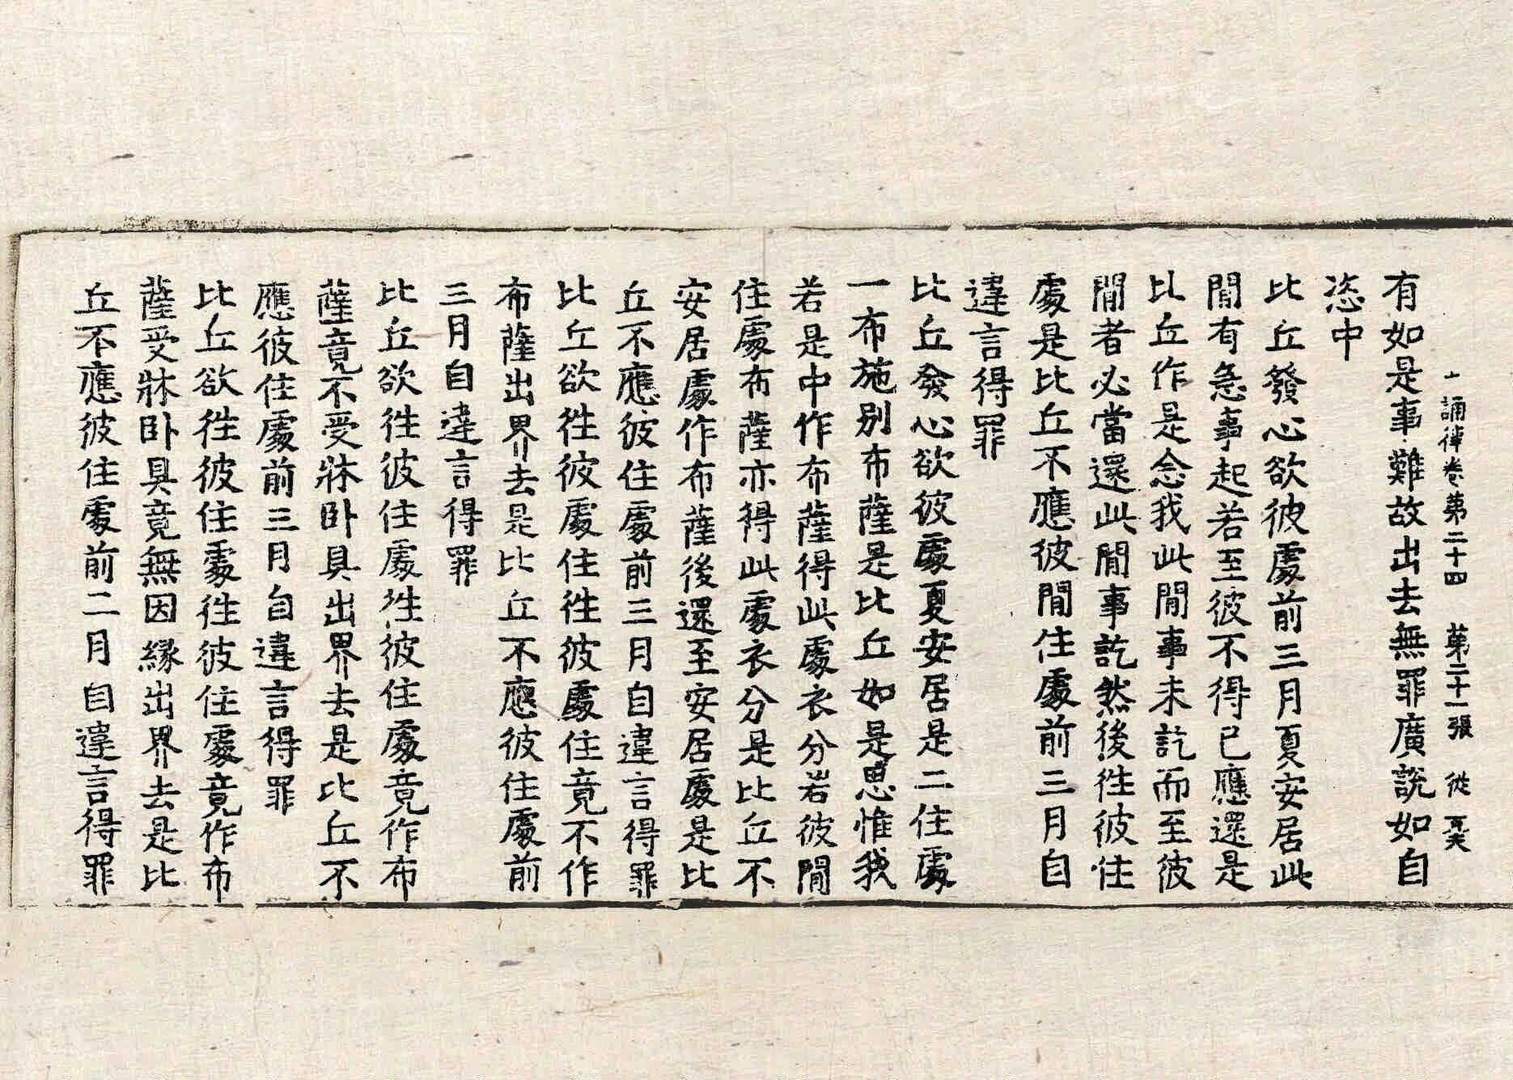 十誦律卷第二十四　第三十一張　従
有如是事難故出去無罪廣說如自
恣中
比丘發心欲彼處前三月夏安居此
閒有急事起若至彼不得已應還是
比丘作是念我此閒事未訖而至彼
閒者必當還此閒事訖然後往彼住
處是比丘不應彼閒住處前三月自
違言得罪
比丘發心欲彼處夏安居是二住處
一布施別布薩是比丘如是思惟我
若是中作布薩得此處衣分若彼閒
住處布薩亦得此處衣分是比丘不
安居處作布薩後還至安居處是比
丘不應彼住處前三月自違言得罪
比丘欲往彼處住往彼處住竟不作
布薩出界去是比丘不應彼住處前
三月自違言得罪
比丘欲往彼住處往彼住處竟作布
薩竟不受牀卧具出界去是比丘不
應彼住處前三月自違言得罪
比丘欲往彼住處往彼住處竟作布
薩受牀卧具竟無因緣出界去是比
丘不應彼住處前二月自違言得罪